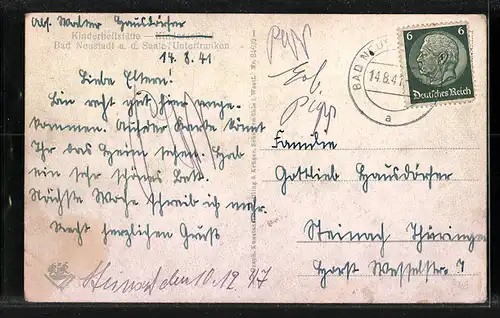 Abs. Walter Hausdörfer
Kinderheilstätte
Bad Neustadt a. d. Saale, Unterfranken
14. 8. 41
Liebe Eltern!
Bin recht gut hier ange-
kommen. Auf der Karte könnt
Ihr das Heim sehen. Hab
ein sehr schönes Bett.
Nächste Woche schreib ich mehr.
Recht herzlichen Gruß
Steinach den 10. 12. 47
6 6
Deutsches Reich
BAD NEU
14.8.41
a
Familie
Gottlieb Hausdörfer
Steinach Thüringen
Horst Wesselstr. 7